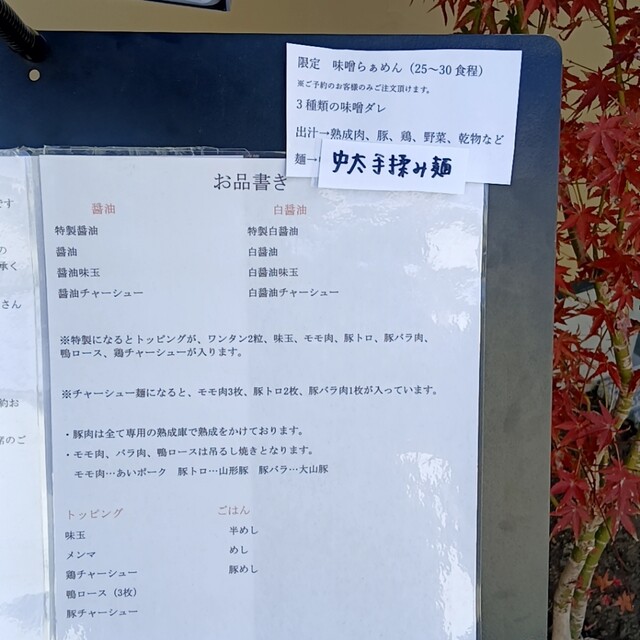 限定　味噌らぁめん（25～30食程）
※ご予約のお客様のみご注文頂けます。
3種類の味噌ダレ
出汁→熟成肉、豚、鶏、野菜、乾物など
麺→中太手揉み麺
お品書き
醤油
特製醤油
醤油
醤油味玉
醤油チャーシュー
白醤油
特製白醤油
白醤油
白醤油味玉
白醤油チャーシュー
※特製になるとトッピングが、ワンタン2粒、味玉、モモ肉、豚トロ、豚バラ肉、
鴨ロース、鶏チャーシューが入ります。
※チャーシュー麺になると、モモ肉3枚、豚トロ2枚、豚バラ肉1枚が入っています。
・豚肉は全て専用の熟成庫で熟成をかけております。
・モモ肉、バラ肉、鴨ロースは吊るし焼きとなります。
モモ肉…あいポーク　豚トロ…山形豚　豚バラ…大山豚
トッピング
味玉
メンマ
鶏チャーシュー
鴨ロース（3枚）
豚チャーシュー
ごはん
半めし
めし
豚めし
です
の
承く
さん
約お
席のご